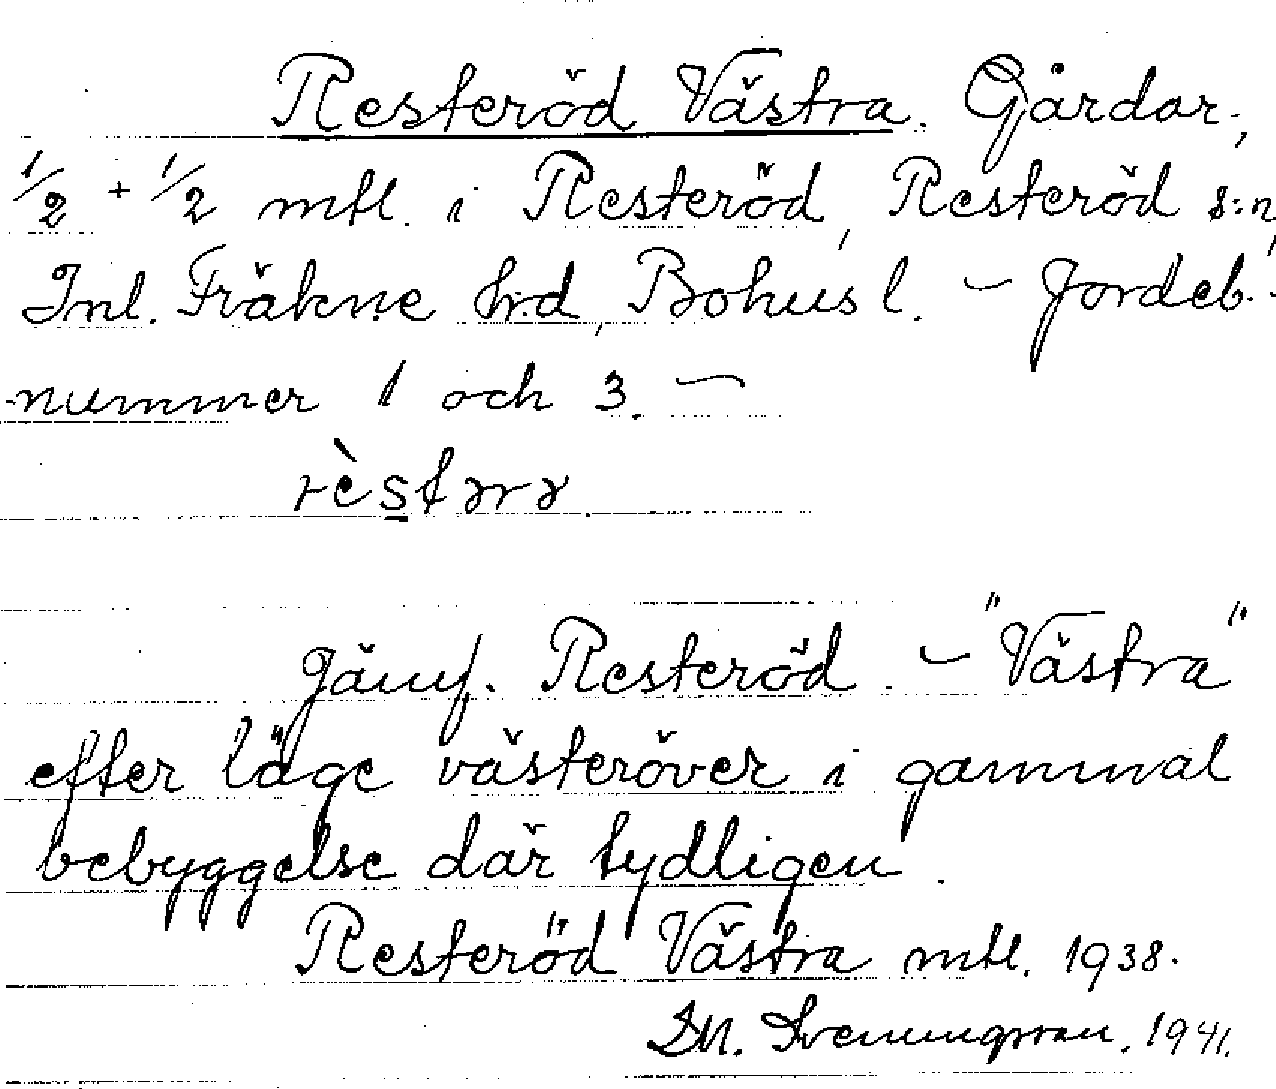 Resteröd Västra. Gårdar,
1/2 + 1/2 mtl. i Resteröd, Resteröd s:n,
Inl. Fräkne hrd, Bohusl. - Jordeb.-
nummer 1 och 3. -
rèstərə.
Jämf. Resteröd. - "Västra"
efter läge västeröver i gammal
bebyggelse där tydligen.
Resteröd Västra mtl. 1938.
Sm. Svenungsson. 1941.